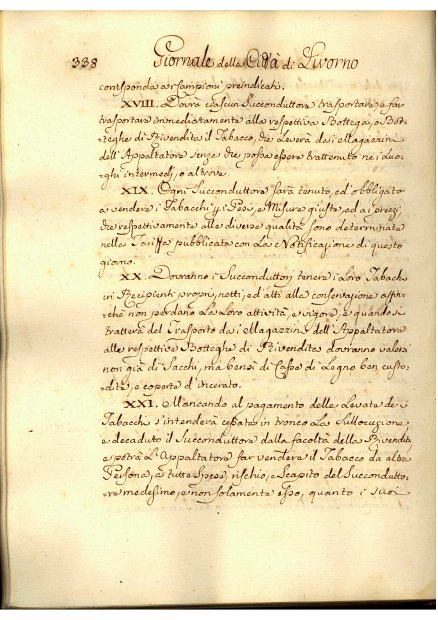 338 Giornale della Città di Livorno
corrisponda a' Campioni preindicati.
XVIII. Dovrà ciascun Succonduttore trasportare, o far
trasportare immediatamente alla respettiva Bottega, o Bot-
teghe di Rivendita il Tabacco, che leverà da i Magazzini
dell'Appaltatore senza che possa essere trattenuto ne i Luo-
ghi intermedj, o altrove.
XIX. Ogni Succonduttore sarà tenuto, ed obbligato
a vendere i Tabacchi p i Pesi, e Misure giuste, ed a i prezzi,
che respettivamente alle diverse qualità sono determinate
nella Tariffa pubblicata con La Notificazione di questo
giorno.
XX. Dovranno i Succonduttori tenere i Loro Tabach
in Recipienti proprj, netti, ed atti alla conservazione affin-
chè non perdano La Loro attività, e vigore, e quando si
tratterà del Trasporto da i Magazzini dell'Appaltatore
alle respettive Botteghe di Rivendita dovranno valersi
non già di Sacchi, ma bensì di Casse di Legno ben custo-
dite, e coperte d'incerato.
XXI. Mancando al pagamento delle Levate de i
Tabacchi s'intenderà cessata in tronco La Sullocazione,
e decaduto il Succonduttore dalla facoltà della Rivendita
e potrà L'Appaltatore far vendere il Tabacco da altra
Persona, a tutte Spese, rischio, e Scapito del Succondutto-
re medesimo, e non solamente esso, quanto i suoi